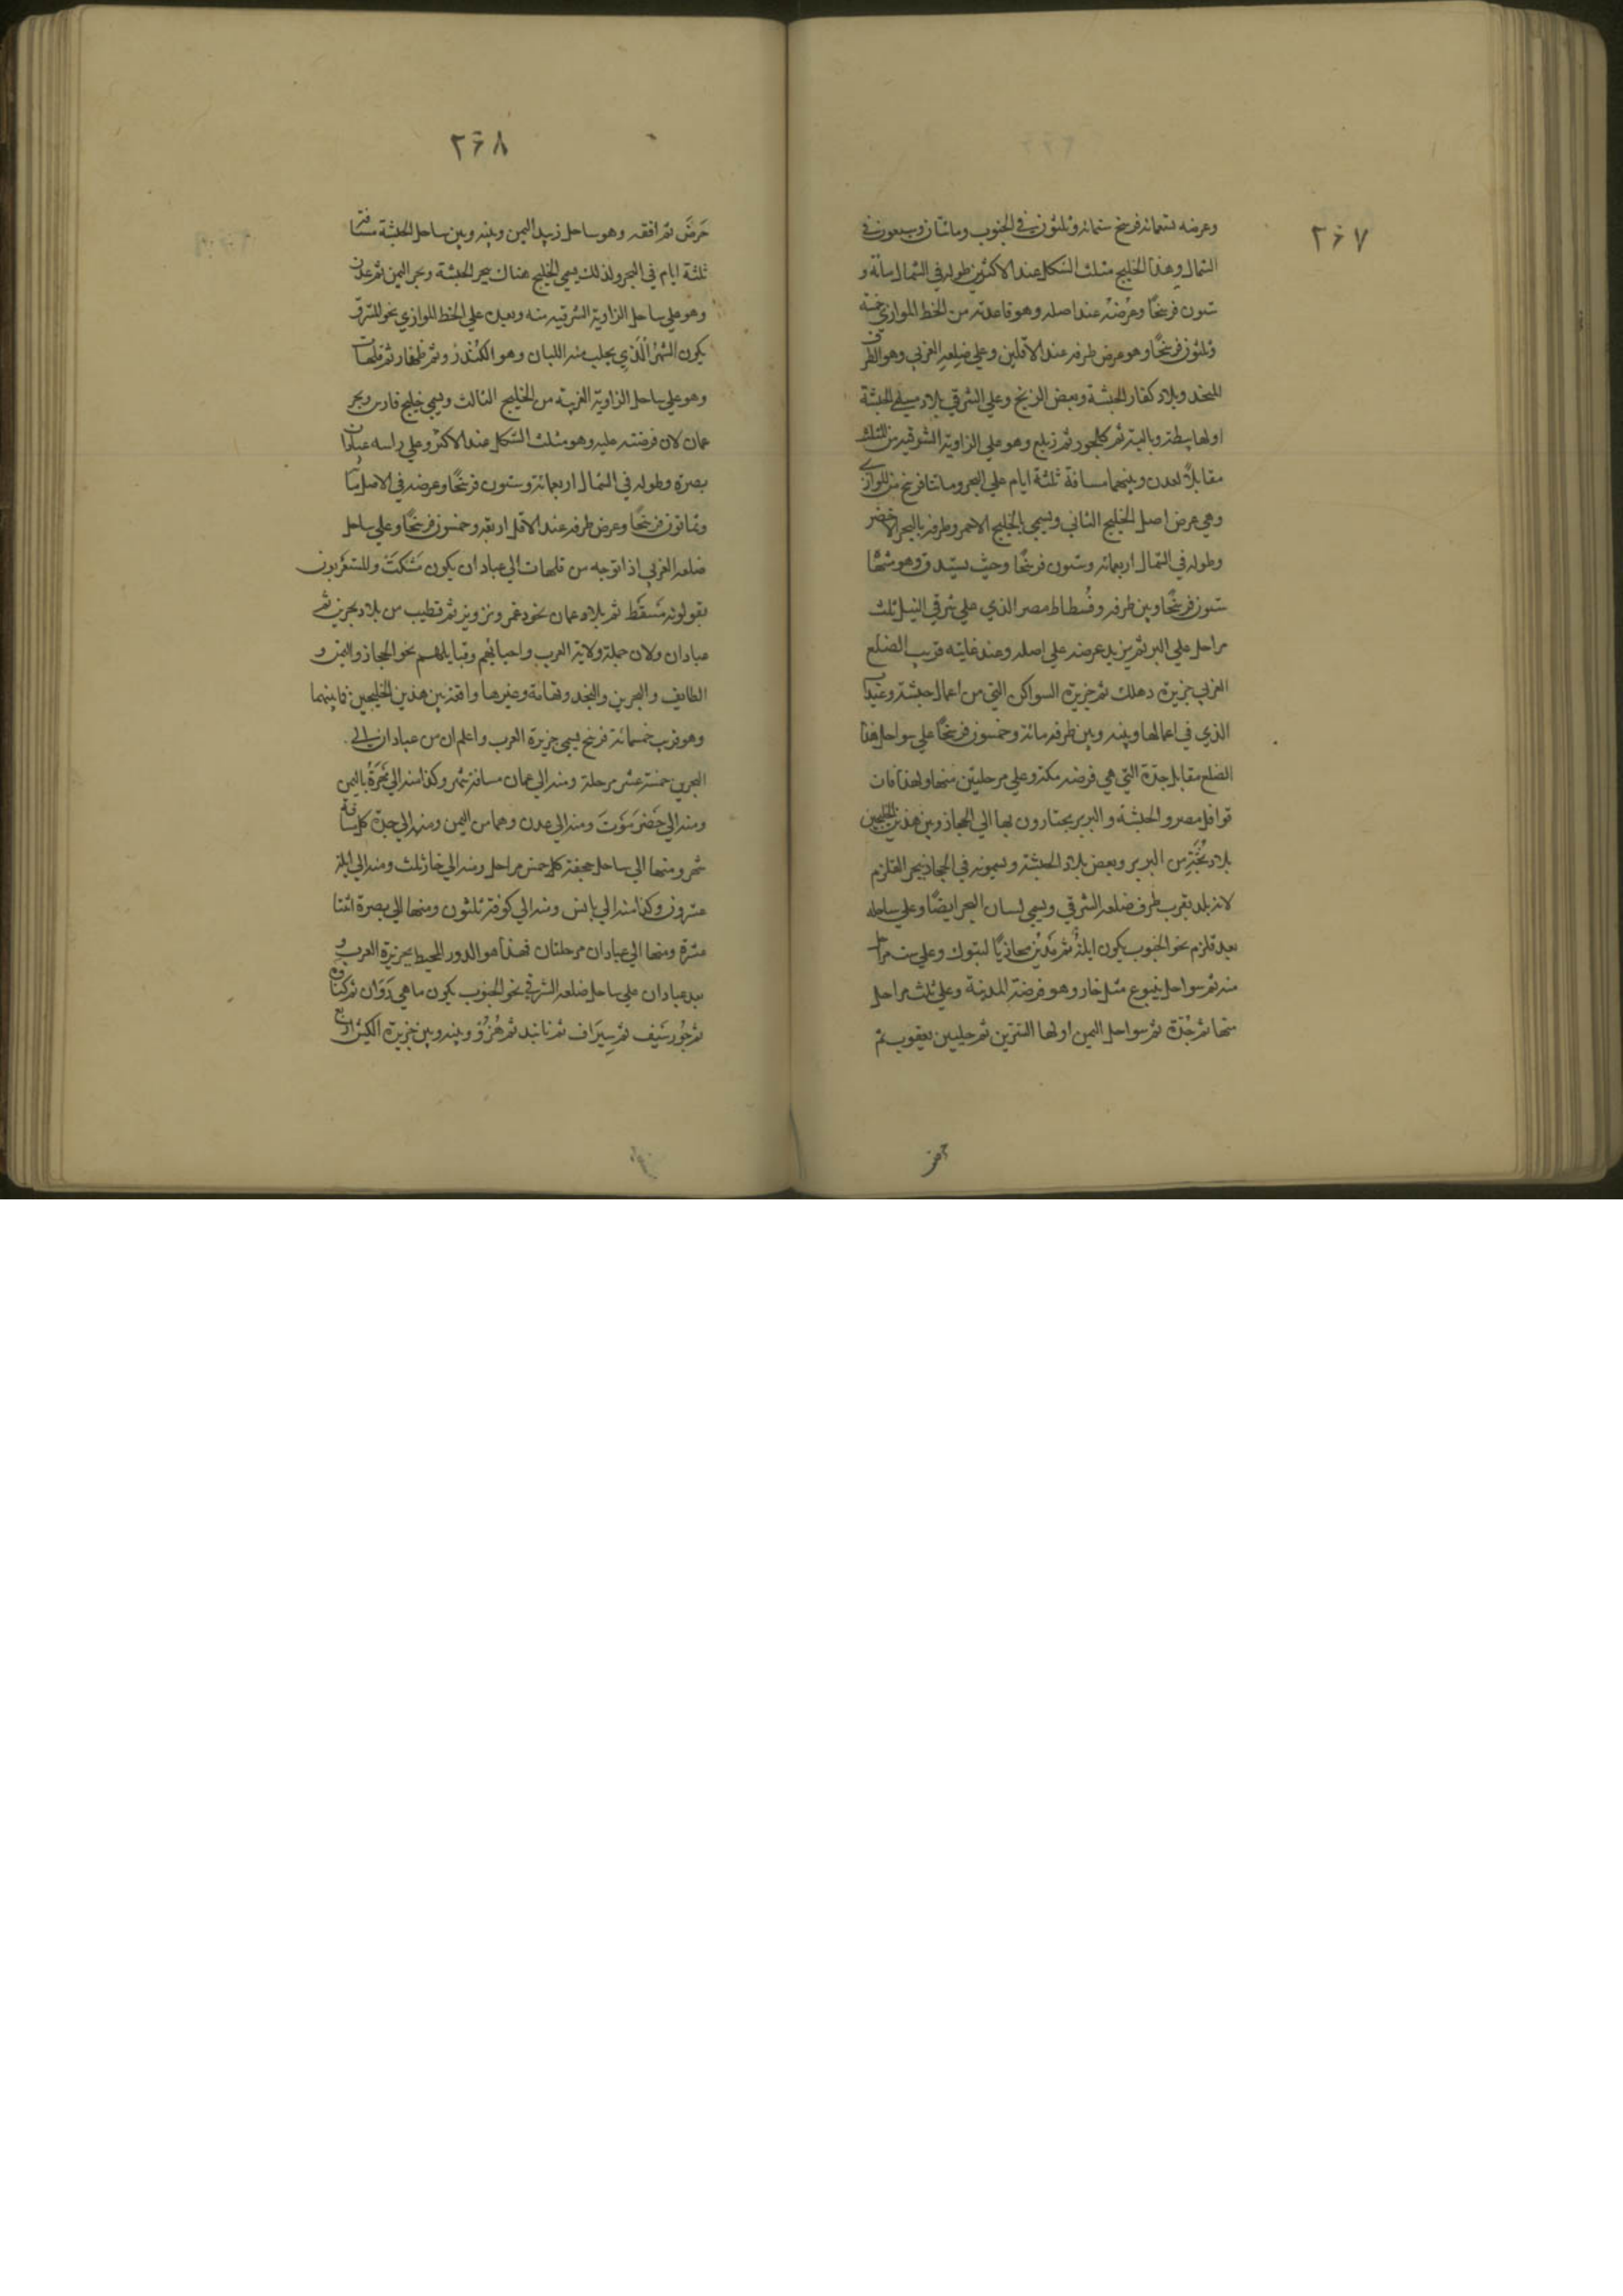 ٢٦٧
وعرضه تسعمائة فرسخ ستمائة وثلثون في الجنوب ومائتان وسبعون في
الشمال وهذا الخليج مثلث الشكل عند الاكثرين طوله في الشمال مائة و
ستون فرسخًا وعرضه عند اصله وهو قاعدته من الخط الموازي خمسة
وثلثون فرسخًا وهو عرض طرفه عند الاقلين وعلي ضلعه الغربي وهو الطرف
وبلاد كفار الحبشة وبعض الزنج وعلي الشرقي بلاد مسلمي الحبشة
اولها ثم ثم زيلع وهو علي الزاوية الشرقية من المثلث
مقابلًا لعدن وبينهما مسافة ثلثة ايام علي البحر ومائتا فرسخ من الموازي
وهي عرض اصل الخليج الثاني ويسمي بالخليج الاحمر وطرفه بالبحر الاخضر
وطوله في الشمال اربعمائة وستون فرسخًا وحيث يستدق وهو
ستون فرسخًا وبين طرفه وفسطاط مصر الذي علي شرقي النيل ثلث
مراحل علي البر ثم يزيد عرضه علي اصله وعند غايته قريب الضلع
الغربي جزيرة دهلك ثم جزيرة السواكن التي من اعمال حبشة وعيذاب
الذي في اعمالها وبينه وبين طرفه مائة وخمسون فرسخًا علي سواحل هذا
الضلع مقابل جدة التي هي فرضة مكة وعلي مرحلتين منها ولهذا كانت
قوافل مصر والحبشة والبربر يجتازون بها الي الحجاز وبين هذين الخليجين
بلاد من البربر وبعض بلاد الحبشة ويسمونه في الحجاز ببحر القلزم
لانه بلد بقرب طرف ضلعه الشرقي ويسمي لسان البحر ايضًا وعلي ساحله
بعد قلزم نحو الجنوب يكون ايلة ثم مدين محاذيًا لتبوك وعلي ست مراحل
منه ثم سواحل ينبوع مثل خار وهو فرضة المدينة وعلي ثلث مراحل
منها ثم جدة ثم سواحل اليمن اولها السرين ثم حلي بن يعقوب ثم
٢٦٨
حرض ثم افقه وهو ساحل زبيد اليمن وبينه وبين ساحل الحبشة مسافة
ثلثة ايام في البحر ولذلك يسمي الخليج هناك ببحر الحبشة وبحر اليمن ثم عدن
وهو علي ساحل الزاوية الشرقية منه وبعدن علي الخط الموازي نحو الشرق
يكون الشحر الذي يجلب منه اللبان وهو الكندر وثم ظفار ثم قلهات
وهو علي ساحل الزاوية الغربية من الخليج الثالث ويسمي خليج فارس وبحر
عمان لان فرضته عليه وهو مثلث الشكل عند الاكثر وعلي راسه عبادان
بصرة وطوله في الشمال اربعمائة وستون فرسخًا وعرضه في الاصل
وثمانون فرسخًا وعرض طرفه عند الاقل اربعة وخمسون فرسخًا وعلي ساحل
ضلعه الغربي اذا توجه من قلهات الي عبادان يكون مشكت والمستعربون
يقولونه مسقط ثم بلاد عمان نحو دغمر ونزوين ثم قطيب من بلاد بحرين ثم
عبادان ولان جملة ولاية العرب واحيائهم وقبايلهم نحو الحجاز واليمن و
الطايف والبحرين والنجد وتهامة وغيرها واقعة بين هذين الخليجين فما بينهما
وهو قرب خمسمائة فرسخ يسمي جزيرة العرب واعلم ان من عبادان الي
البحرين خمسة عشر مرحلة ومنه الي عمان مسافة شهر وكذا منه الي باليمن
ومنه الي حضرموت ومنه الي عدن وهما من اليمن ومنه الي جدة كل مسافة
شهر ومنها الي ساحل جحفة كله خمس مراحل ومنه الي خار ثلث ومنه الي ايلة
عشرون وكذا منه الي بالس ومنه الي كوفة ثلثون ومنها الي بصرة اثنتا
عشرة ومنها الي عبادان مرحلتان فهذا هو الدور المحيط بجزيرة العرب و
بعد عبادان علي ساحل ضلعه الشرقي نحو الجنوب يكون ماهي رَوَان ثم كناوه
ثم جُورسيف ثم سِيَراف ثم نابند ثم هُزُو وبينه وبين جزيرة الكيش اربع